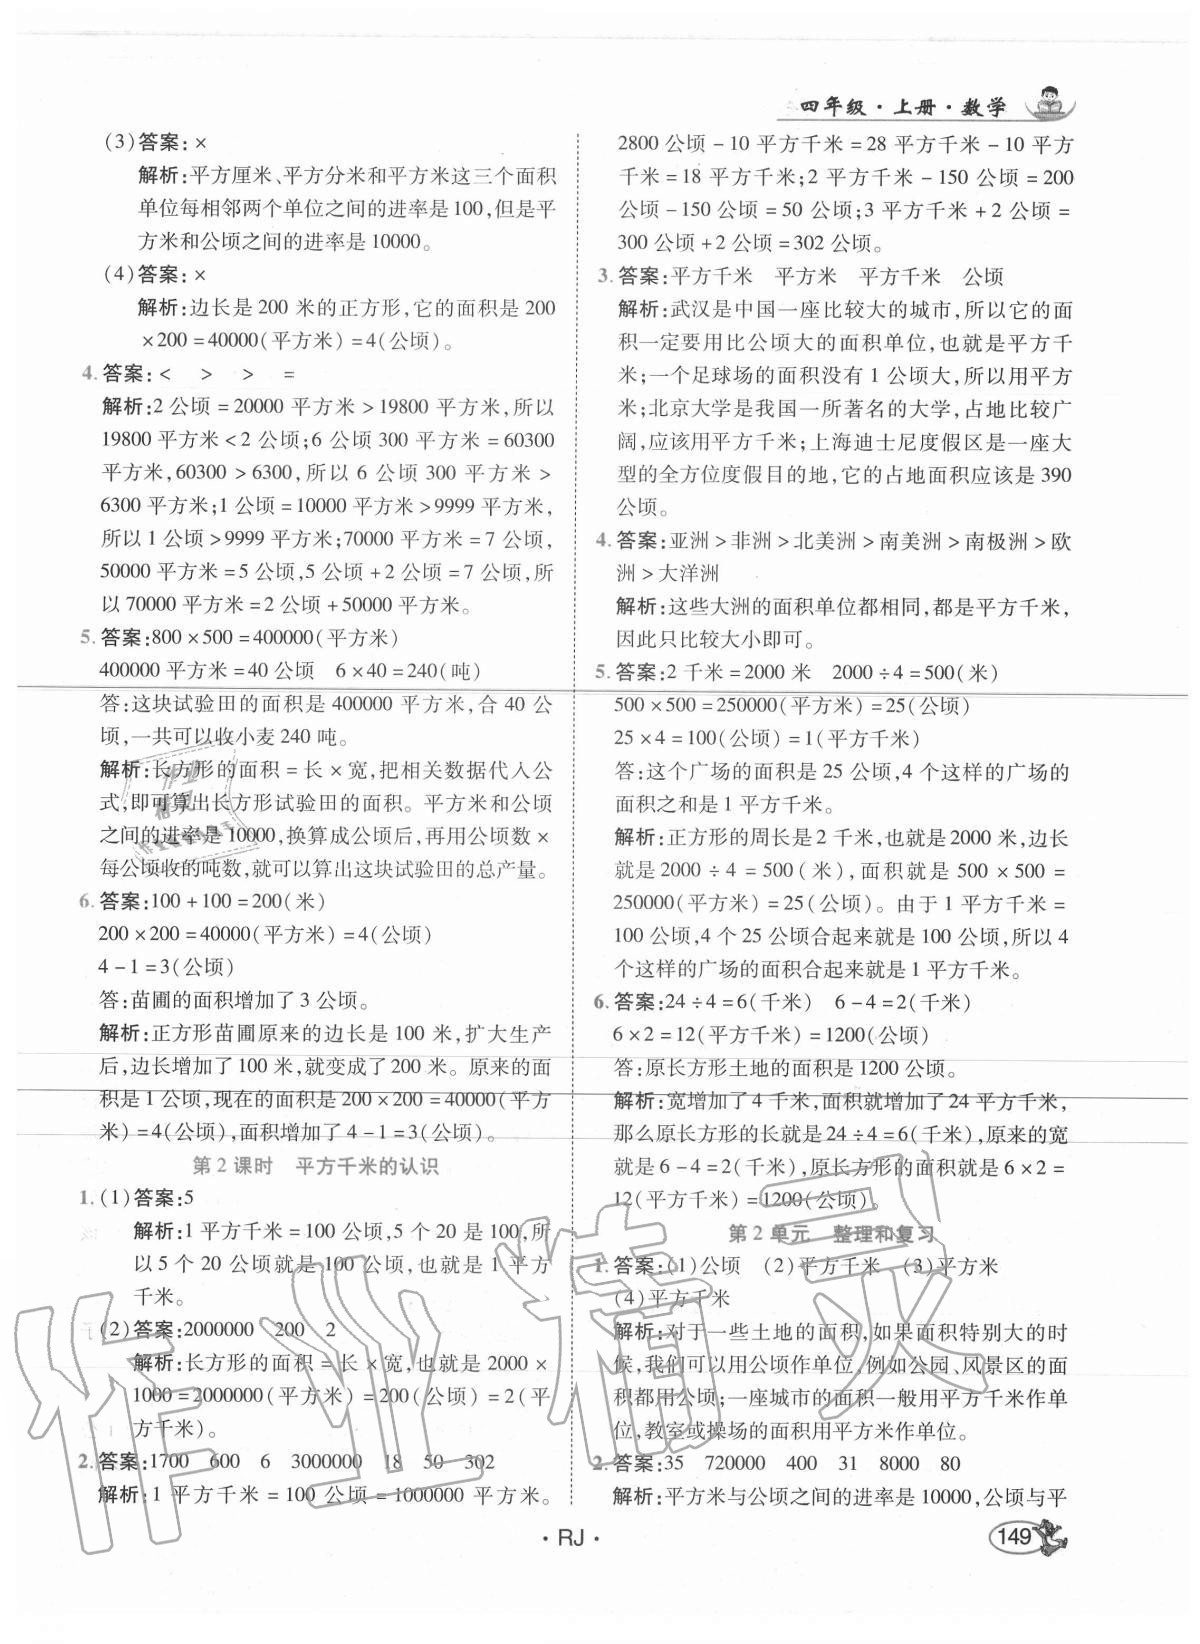 四年级·上册·数学
(3)答案:×
解析:平方厘米、平方分米和平方米这三个面积
单位每相邻两个单位之间的进率是100,但是平
方米和公顷之间的进率是10000。
(4)答案:×
解析:边长是200米的正方形,它的面积是200
×200=40000(平方米)=4(公顷)。
4.答案:<  >  >  =
解析:2公顷=20000平方米>19800平方米,所以
19800平方米<2公顷;6公顷300平方米=60300
平方米,60300>6300,所以6公顷300平方米>
6300平方米;1公顷=10000平方米>9999平方米,
所以1公顷>9999平方米;70000平方米=7公顷,
50000平方米=5公顷,5公顷+2公顷=7公顷,所
以70000平方米=2公顷+50000平方米。
5.答案:800×500=400000(平方米)
400000平方米=40公顷  6×40=240(吨)
答:这块试验田的面积是400000平方米,合40公
顷,一共可以收小麦240吨。
解析:长方形的面积=长×宽,把相关数据代入公
式,即可算出长方形试验田的面积。平方米和公顷
之间的进率是10000,换算成公顷后,再用公顷数×
每公顷收的吨数,就可以算出这块试验田的总产量。
6.答案:100+100=200(米)
200×200=40000(平方米)=4(公顷)
4-1=3(公顷)
答:苗圃的面积增加了3公顷。
解析:正方形苗圃原来的边长是100米,扩大生产
后,边长增加了100米,就变成了200米。原来的面
积是1公顷,现在的面积是200×200=40000(平方
米)=4(公顷),面积增加了4-1=3(公顷)。
第2课时  平方千米的认识
1.(1)答案:5
解析:1平方千米=100公顷,5个20是100,所
以5个20公顷就是100公顷,也就是1平方
千米。
(2)答案:2000000  200  2
解析:长方形的面积=长×宽,也就是2000×
1000=2000000(平方米)=200(公顷)=2(平
方千米)。
2.答案:1700  600  6  3000000  18  50  302
解析:1平方千米=100公顷=1000000平方米。
2800公顷-10平方千米=28平方千米-10平方
千米=18平方千米;2平方千米-150公顷=200
公顷-150公顷=50公顷;3平方千米+2公顷=
300公顷+2公顷=302公顷。
3.答案:平方千米  平方米  平方千米  公顷
解析:武汉是中国一座比较大的城市,所以它的面
积一定要用比公顷大的面积单位,也就是平方千
米;一个足球场的面积没有1公顷大,所以用平方
米;北京大学是我国一所著名的大学,占地比较广
阔,应该用平方千米;上海迪士尼度假区是一座大
型的全方位度假目的地,它的占地面积应该是390
公顷。
4.答案:亚洲>非洲>北美洲>南美洲>南极洲>欧
洲>大洋洲
解析:这些大洲的面积单位都相同,都是平方千米,
因此只比较大小即可。
5.答案:2千米=2000米  2000÷4=500(米)
500×500=250000(平方米)=25(公顷)
25×4=100(公顷)=1(平方千米)
答:这个广场的面积是25公顷,4个这样的广场的
面积之和是1平方千米。
解析:正方形的周长是2千米,也就是2000米,边长
就是2000÷4=500(米),面积就是500×500=
250000(平方米)=25(公顷)。由于1平方千米=
100公顷,4个25公顷合起来就是100公顷,所以4
个这样的广场的面积合起来就是1平方千米。
6.答案:24÷4=6(千米)  6-4=2(千米)
6×2=12(平方千米)=1200(公顷)
答:原长方形土地的面积是1200公顷。
解析:宽增加了4千米,面积就增加了24平方千米,
那么原长方形的长就是24÷4=6(千米),原来的宽
就是6-4=2(千米),原长方形的面积是6×2=
12(平方千米)=1200(公顷)。
第2单元  整理和复习
1.答案:(1)公顷  (2)平方千米  (3)平方米
(4)平方千米
解析:对于一些土地的面积,如果面积特别大的时
候,我们可以用公顷作单位,例如公园、风景区的面
积都用公顷;一座城市的面积一般用平方千米作单
位,教室或操场的面积用平方米作单位。
2.答案:35  720000  400  31  8000  80
解析:平方米与公顷之间的进率是10000,公顷与平
·RJ·
149
作业精灵